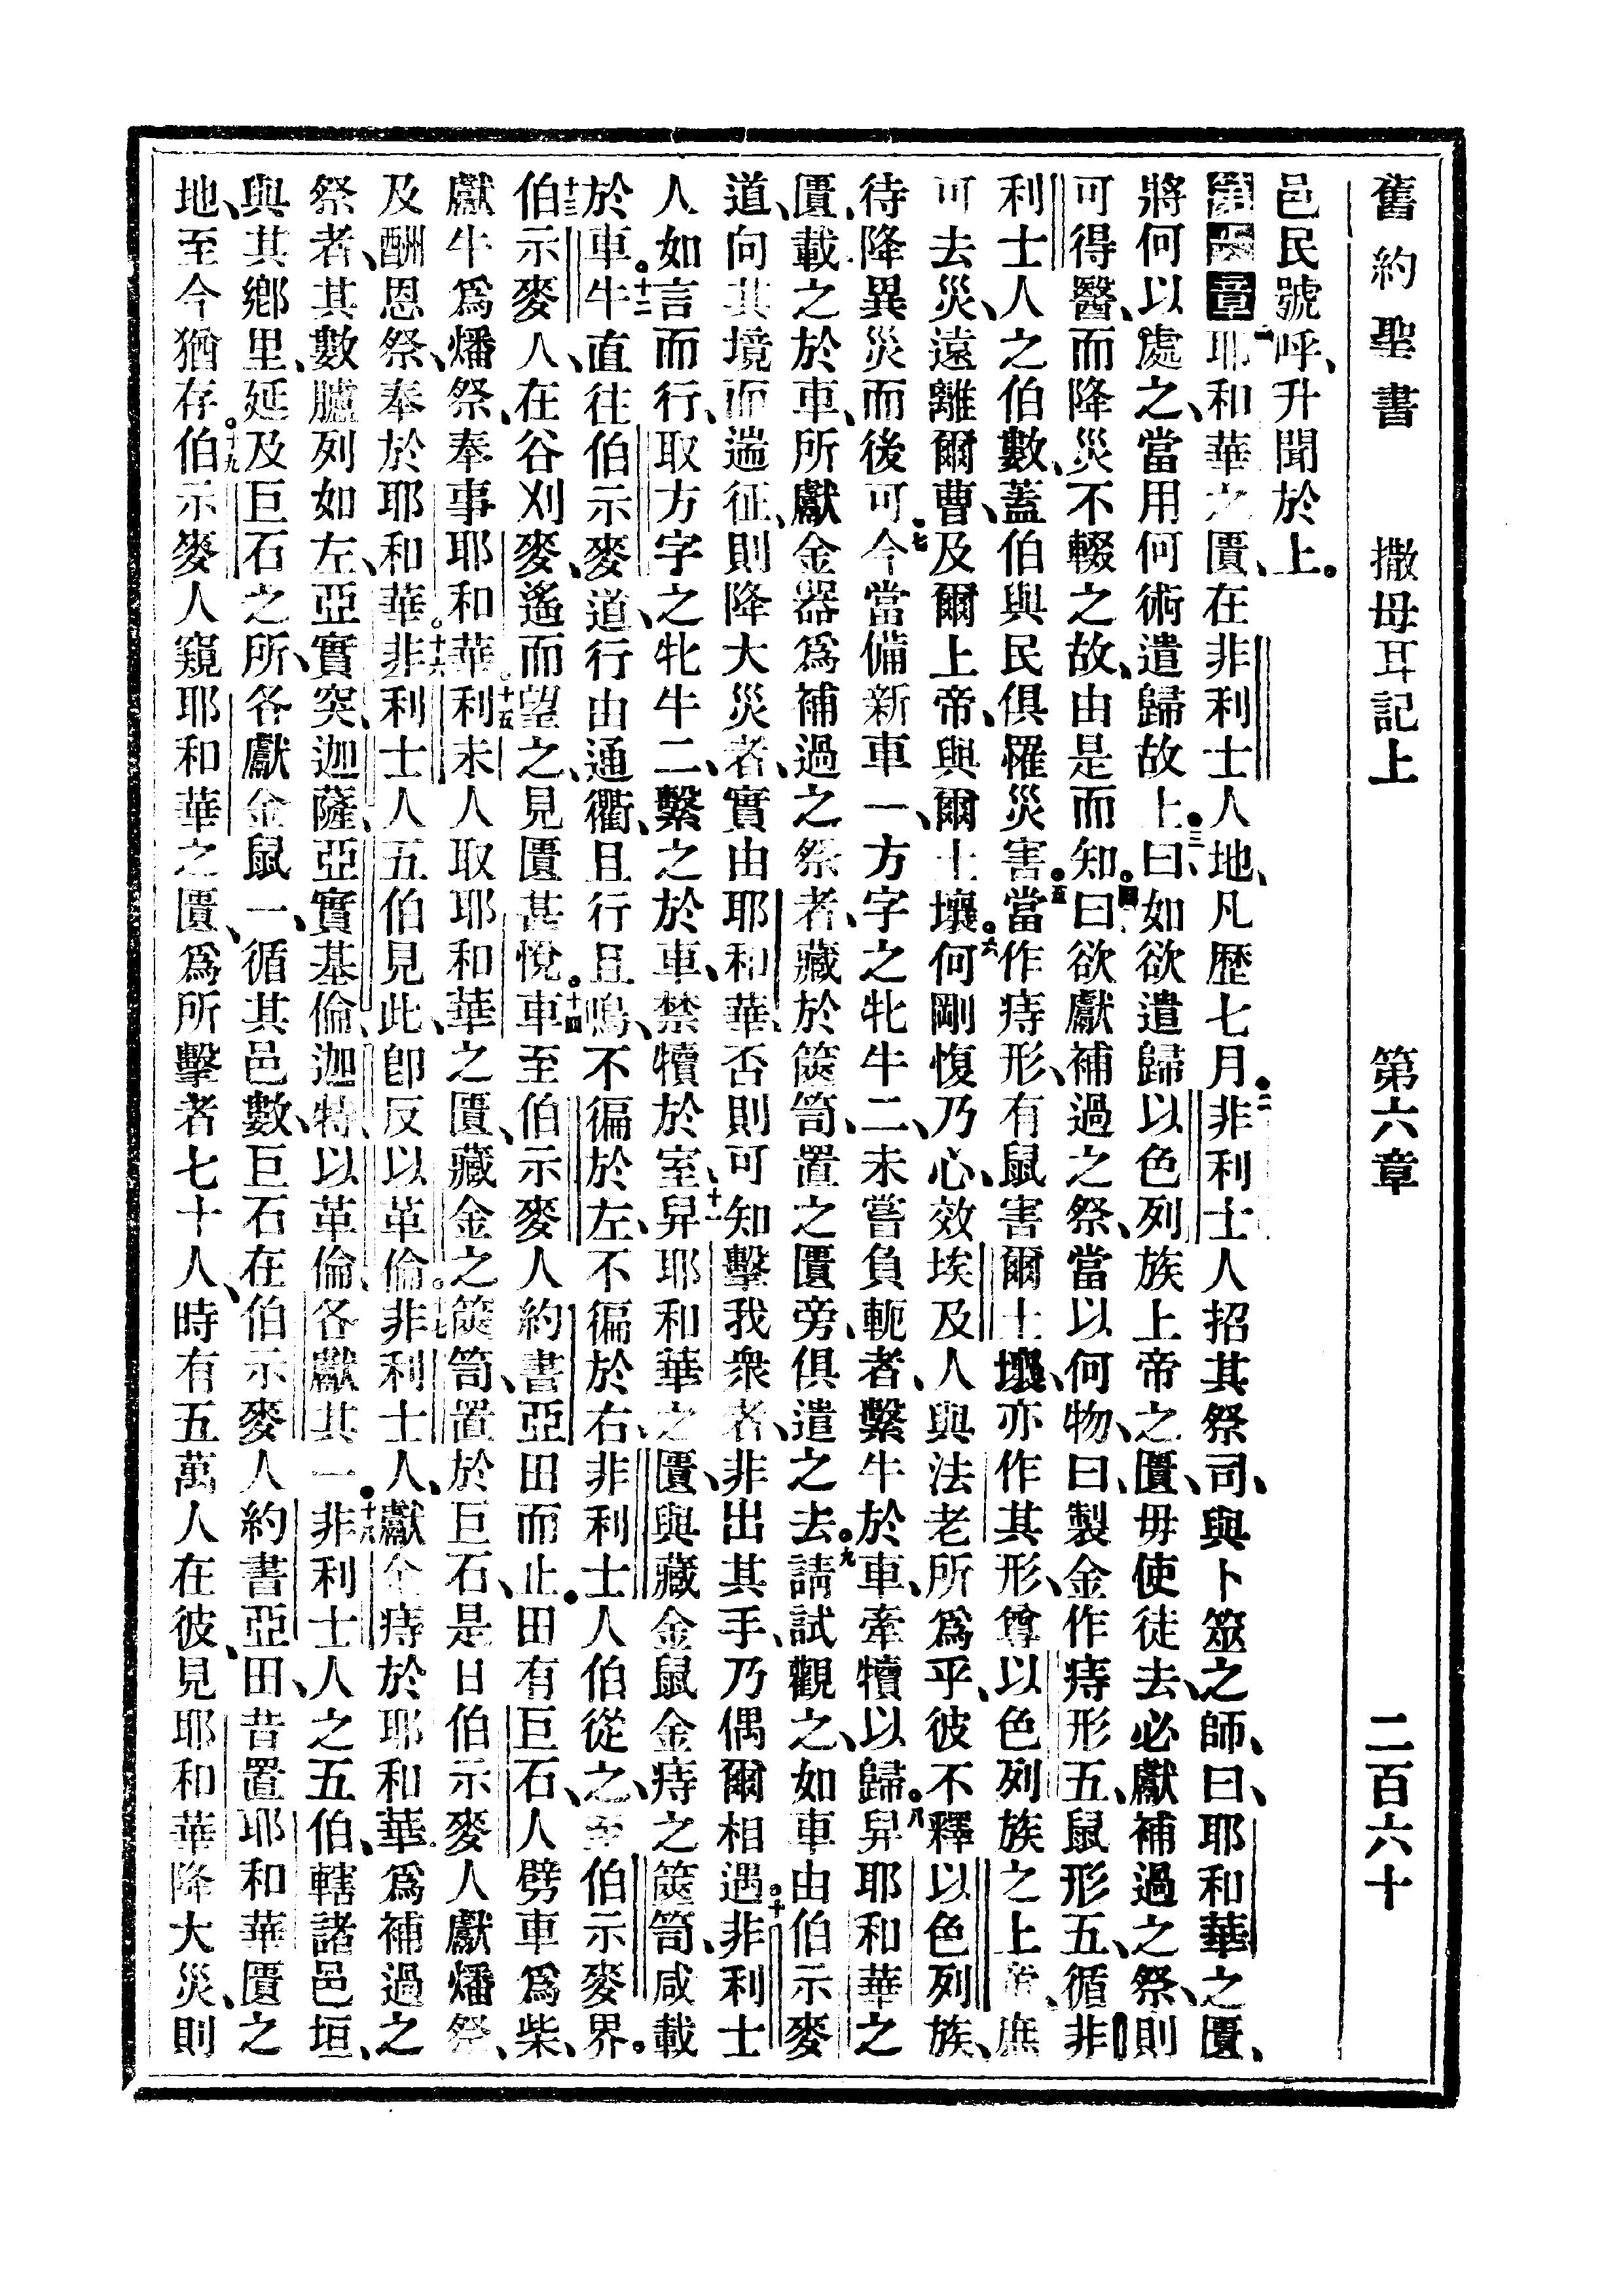 舊約聖書 撒母耳記上 第六章 二百六十
邑民號呼、升聞於上。
第六章 一耶和華之匱、在非利士人地、凡歷七月。二非利士人招其祭司、與卜筮之師、曰、耶和華之匱、
將何以處之、當用何術遣歸故上。三曰、如欲遣歸以色列族上帝之匱、毋使徒去、必獻補過之祭、則
可得醫、而降災不輟之故、由是而知。四曰、欲獻補過之祭、當以何物、曰、製金作痔形五、鼠形五、循非
利士人之伯數、蓋伯與民俱罹災害。五當作痔形、有鼠害爾土壤、亦作其形、尊以色列族之上帝、庶
可去災、遠離爾曹、及爾上帝、與爾土壤。六何剛愎乃心、效埃及人與法老所爲乎、彼不釋以色列族、
待降異災而後可。七今當備新車一、方字之牝牛二、未嘗負軛者、繫牛於車、牽犢以歸。八舁耶和華之
匱、載之於車、所獻金器爲補過之祭者、藏於篋笥、置之匱旁、俱遣之去。九請試觀之、如車由伯示麥
道、向其境而遄征、則降大災者、實由耶和華、否則可知擊我衆者、非出其手、乃偶爾相遇。十非利士
人如言而行、取方字之牝牛二、繫之於車、禁犢於室、十一舁耶和華之匱、與藏金鼠金痔之篋笥、咸載
於車。十二牛直往伯示麥道、行由通衢、且行且鳴、不徧於左、不徧於右、非利士人伯從之、至伯示麥界。
十三伯示麥人、在谷刈麥、遙而望之、見匱甚悅。十四車至伯示麥人約書亞田而止。田有巨石、人劈車爲柴、
獻牛爲燔祭、奉事耶和華。十五利未人取耶和華之匱、藏金之篋笥、置於巨石、是日伯示麥人獻燔祭、
及酬恩祭、奉於耶和華。十六非利士人五伯見此、卽反以革倫。十七非利士人、獻金痔於耶和華、爲補過之
祭者、其數臚列如左、亞實突、迦薩、亞實基倫、迦特、以革倫、各獻其一。十八非利士人之五伯、轄諸邑垣、
與其鄉里、延及巨石之所、各獻金鼠一、循其邑數、巨石在伯示麥人約書亞田、昔置耶和華匱之
地、至今猶存。十九伯示麥人窺耶和華之匱、爲所擊者七十人、時有五萬人在彼、見耶和華降大災、則